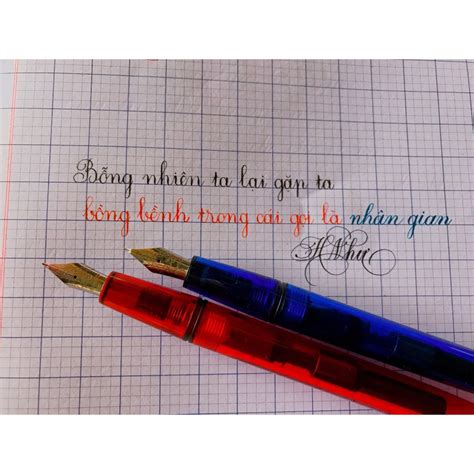 Bỗng nhiên ta lại gặp ta
bồng bềnh trong cái gọi là nhân gian
HNhư